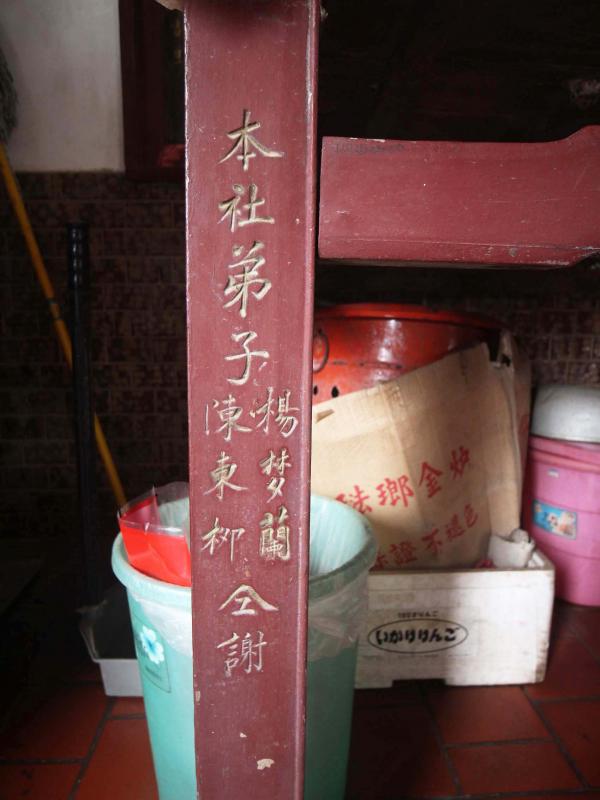 本社弟子
楊梦蘭
陳東柳
仝謝
珐瑯金炉
證不褪色
いかりりんご